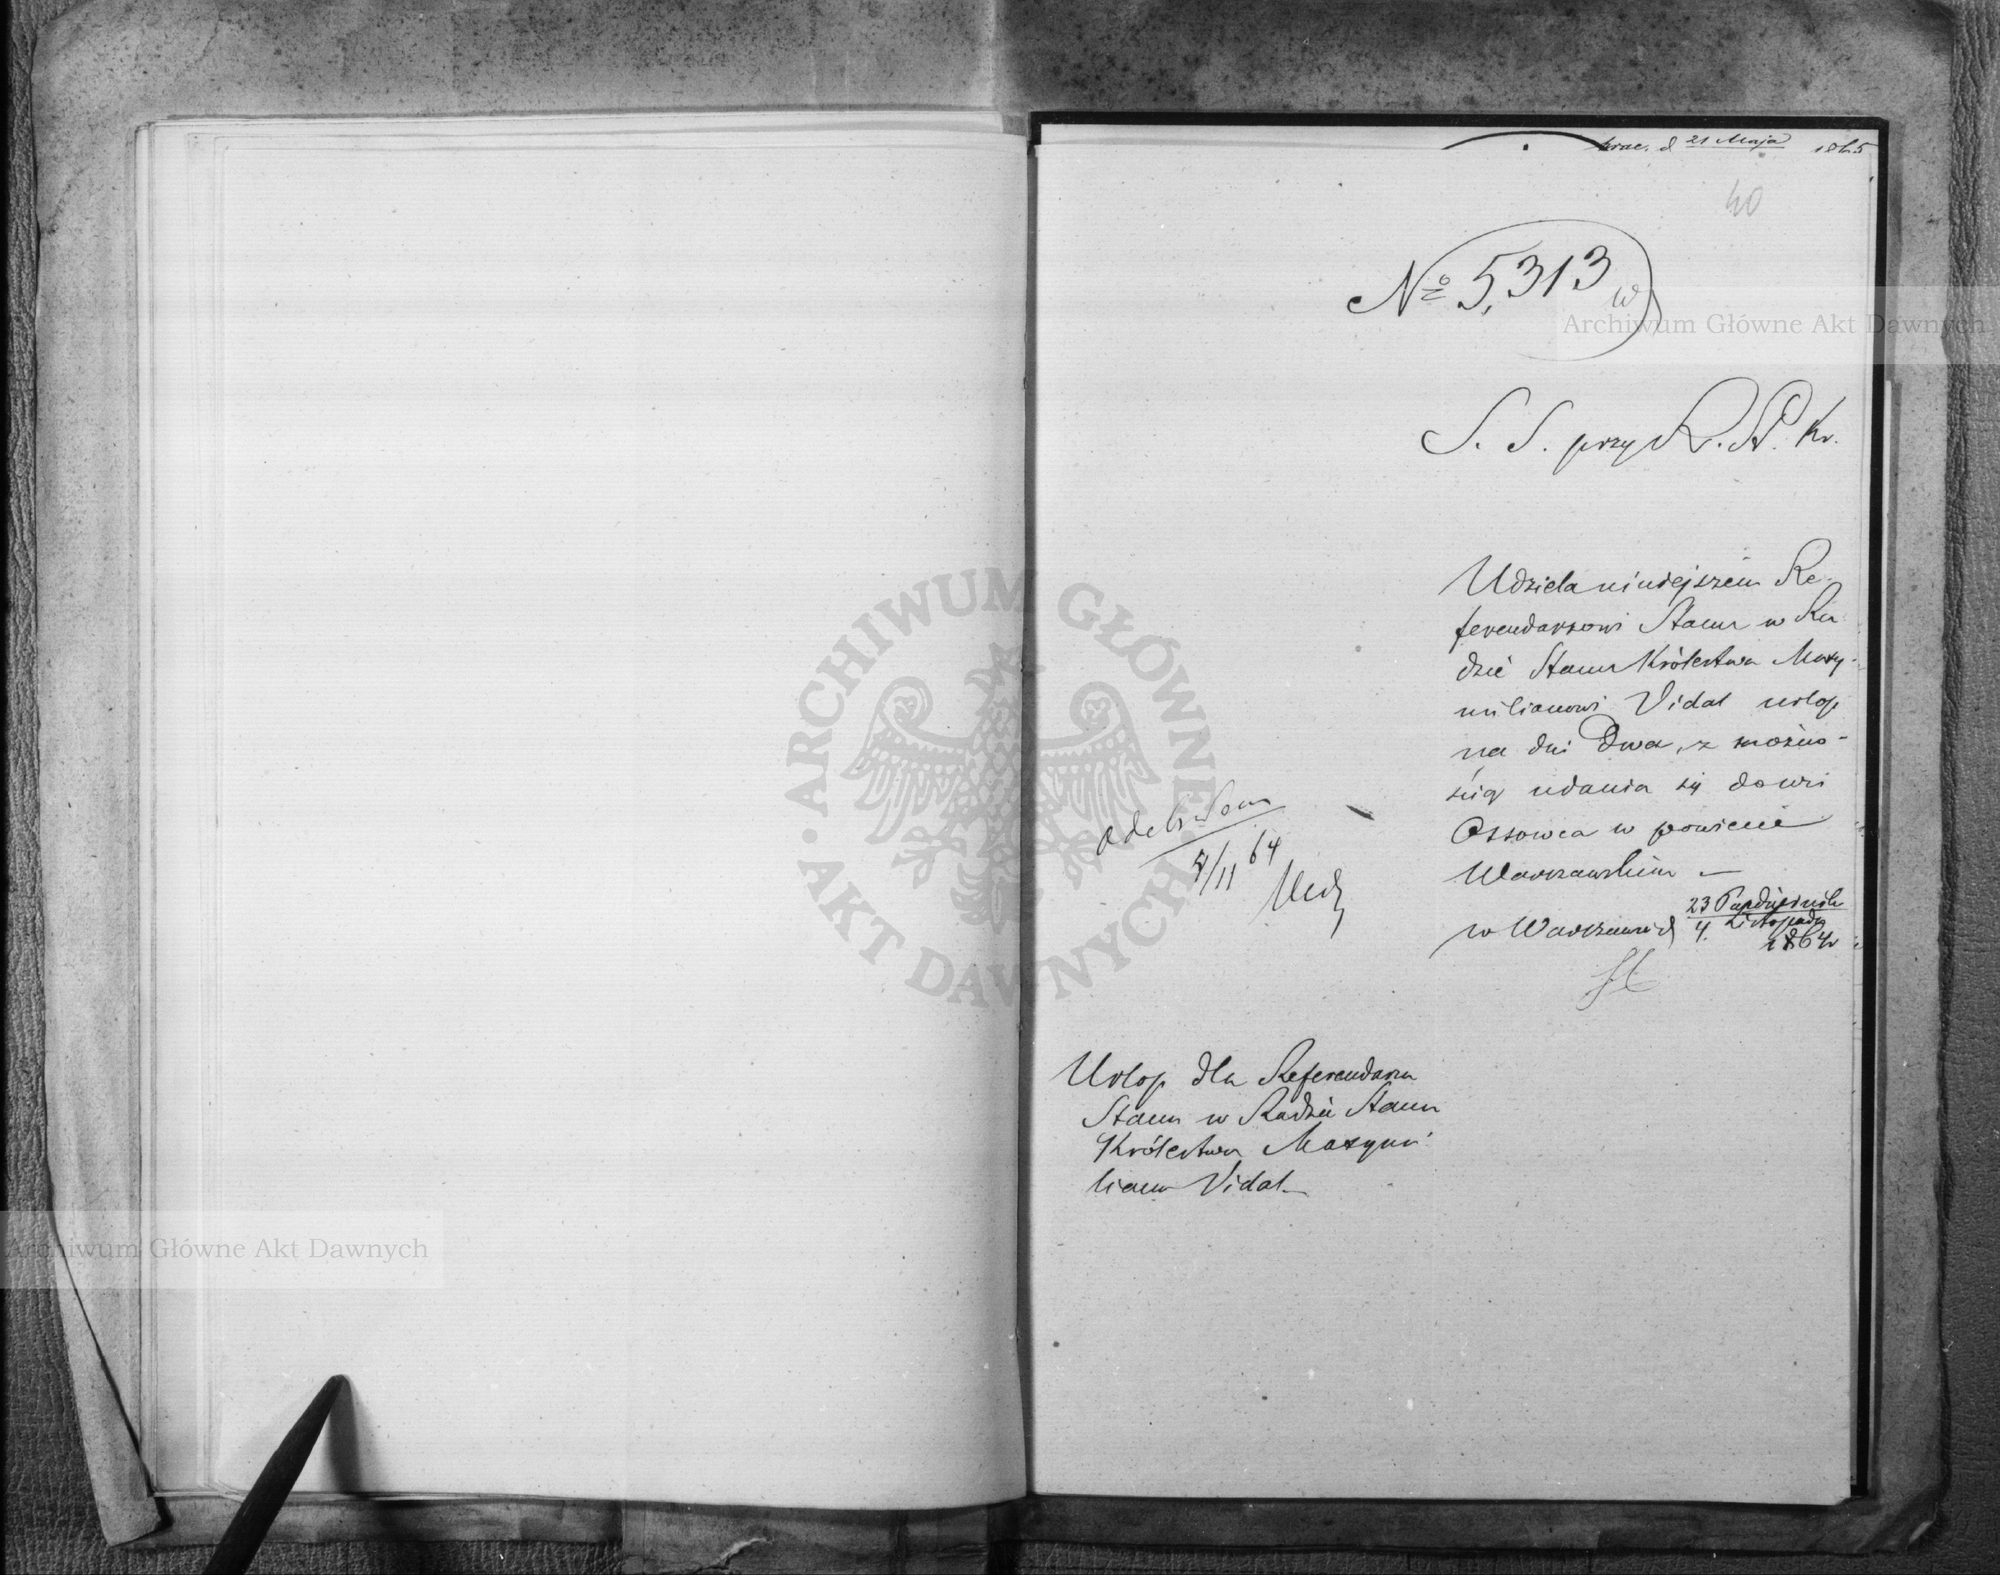 d 21 Maja 1865
40
№ 5,313
S. S. przy R. St. Kr.
Udziela niniejszem Re-
ferendarzowi Stanu w Ra
dzie Stanu Królestwa Maxy-
milianowi Vidal urlop
na dni Dwa, z możno-
ścią udania się do wsi
Ossowca w powiecie
Warszawskim —
w Warszawie d 23 Października
4. Listopada
1864
odebrałem
7/11 64
Urlop dla Referendarza
Stanu w Radzie Stanu
Królestwa Maxymi
liana Vidal —
Archiwum Główne Akt Dawnych
ARCHIWUM GŁÓWNE AKT DAWNYCH
Archiwum Główne Akt Dawnych